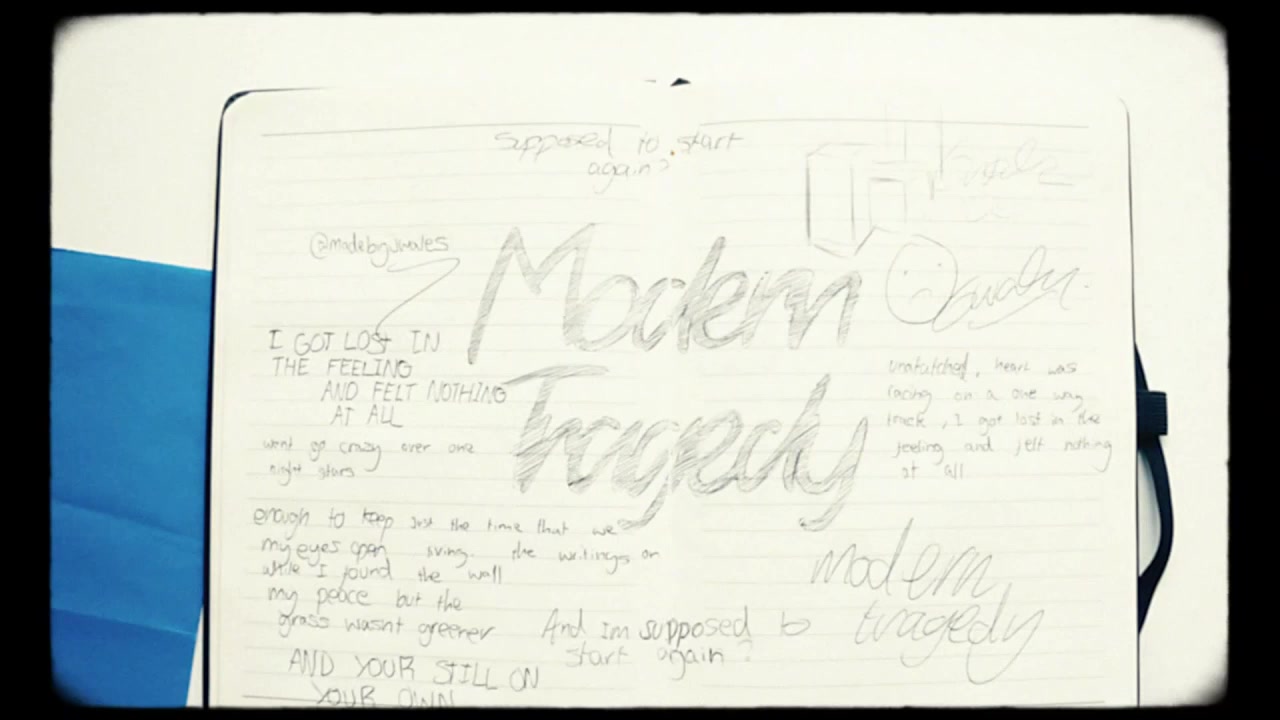 supposed to start
again?
@madebywaves
Modern
Tragedy
I GOT LOST IN
THE FEELING
AND FELT NOTHING
AT ALL
went go crazy over one
night stars
unattached, heart was
racing on a one way
track, I got lost in the
feeling and felt nothing
at all
enough to keep
my eyes open
while I found
my peace but the
grass wasnt greener
AND YOUR STILL ON
YOUR OWN
just the time that we
living. the writings on
the wall
modern
tragedy
And im supposed to
start again?